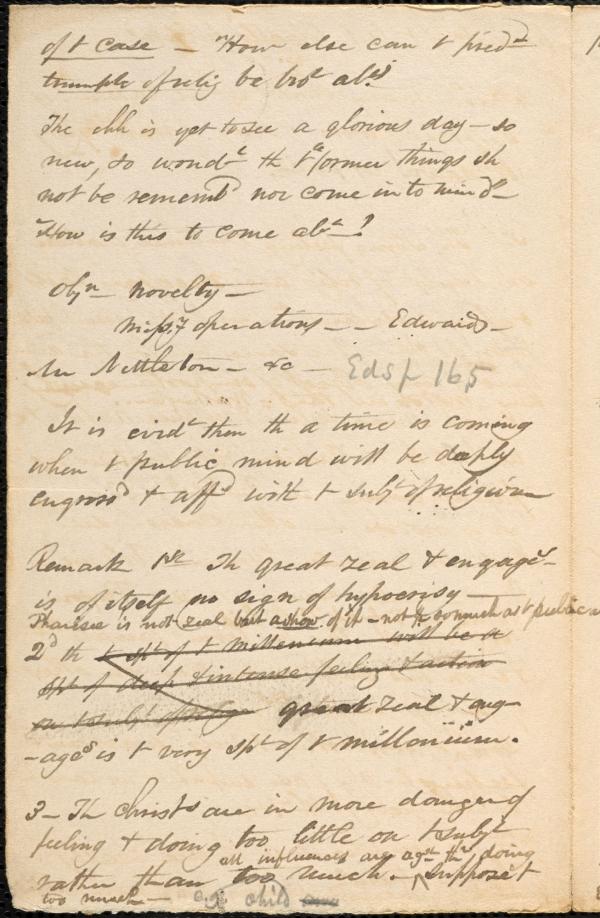 of t case - "How else can t pred^d
triumph of relig be bro^t ab^t?"
The chh is yet to see a glorious day - so
new, so wond^l th t "former things sh
not be rememb^d nor come into mind" -
How is this to come ab^t - ?
Obj^n - novelty -
Miss^y operations - - Edwards -
Mr Nettleton - &c - Eds p 165
It is evid^t then th a time is coming
when t public mind will be deeply
engross^d & aff^d with t subj^t of religion -
Remark 1st Th great zeal & engage^s-
is of itself no sign of hypocrisy -
Pharisee is not zeal but a show of it - not so much as t publican
2^d th t sp^t of t millenium will be a
sp^t of deep & intense feeling & action
on t subj^t of relig great zeal & eng-
-age^s is t very sp^t of t millennium.
3 - Th christ^s are in more danger of
feeling & doing too little on t subj^t
all influences are ag^st th^r doing
rather than too much. - Suppose t
too much - e.g. child